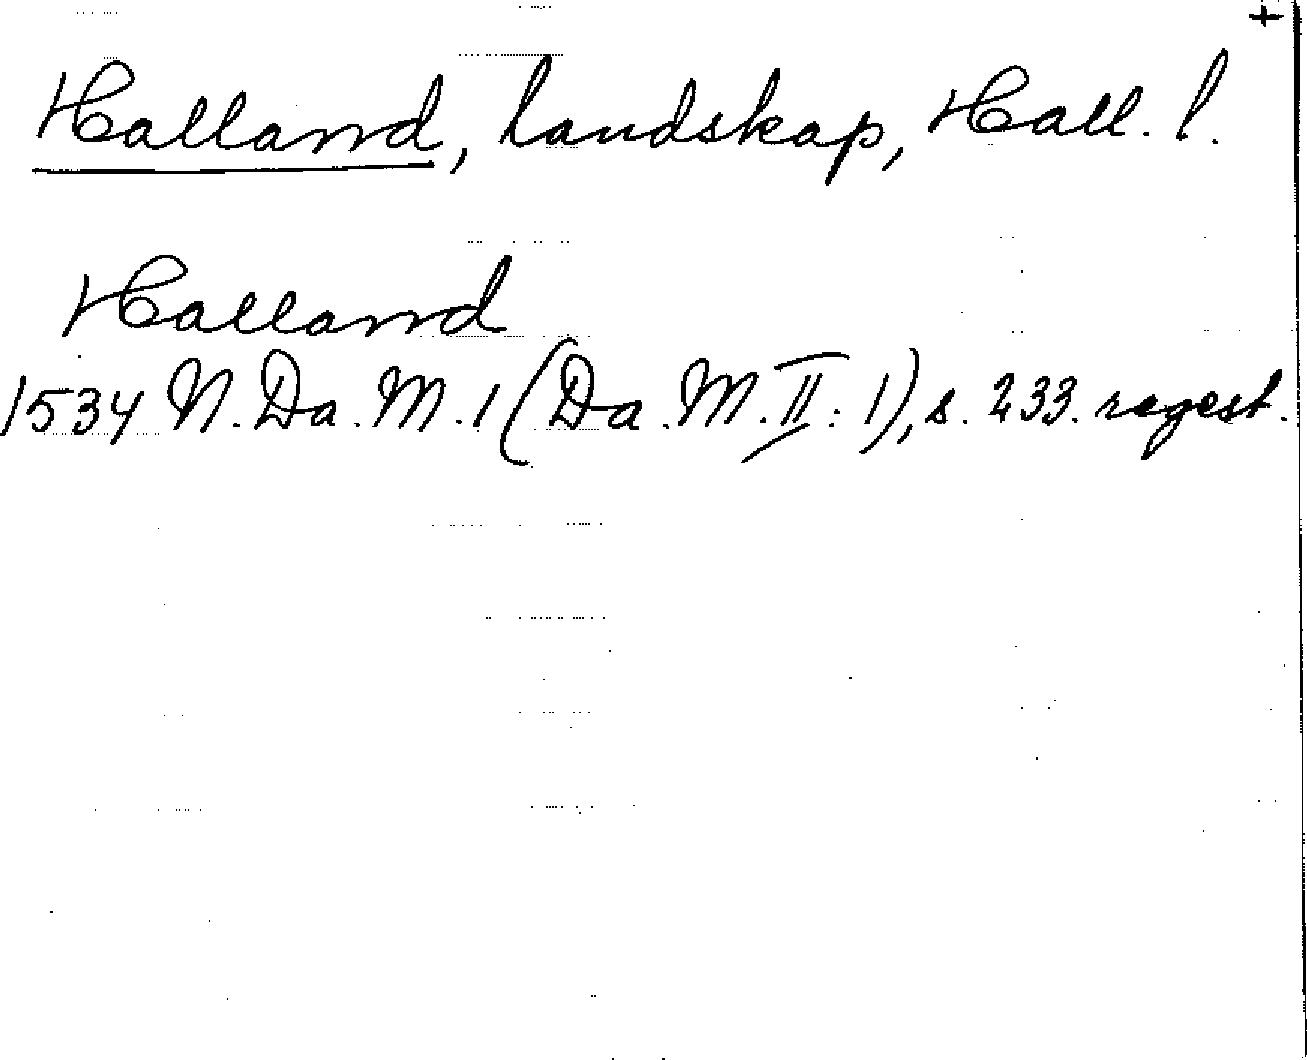 +
Halland, landskap, Hall. l.
Halland
1534 N. Da. M. 1 (Da. M. II: 1), s. 233. regest.